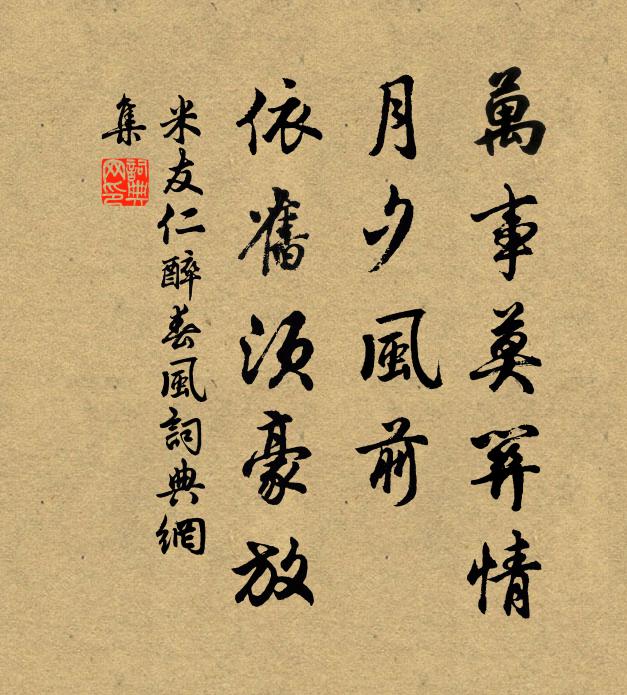 萬事莫關情
月夕風前
依舊須豪放
米友仁醉春風詞典網
集
詞典网印